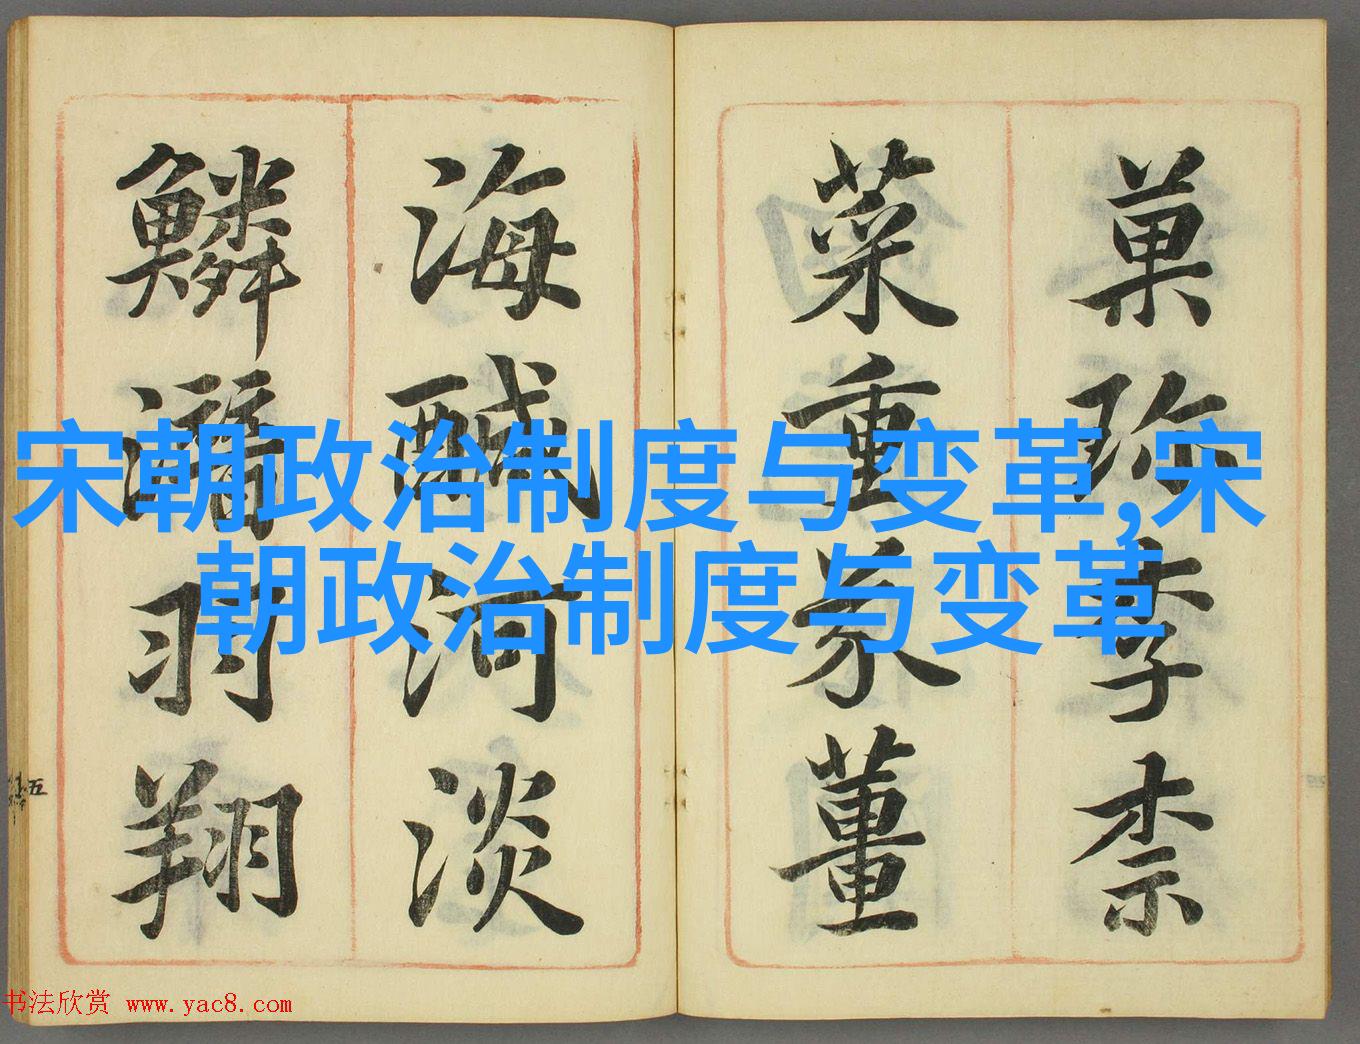 菓珎李柰
菜重芥薑
海醎河淡
鱗潛羽翔
五
宋朝政治制度与变革,宋
朝政治制度与变革
书法欣赏 www.yac8.com